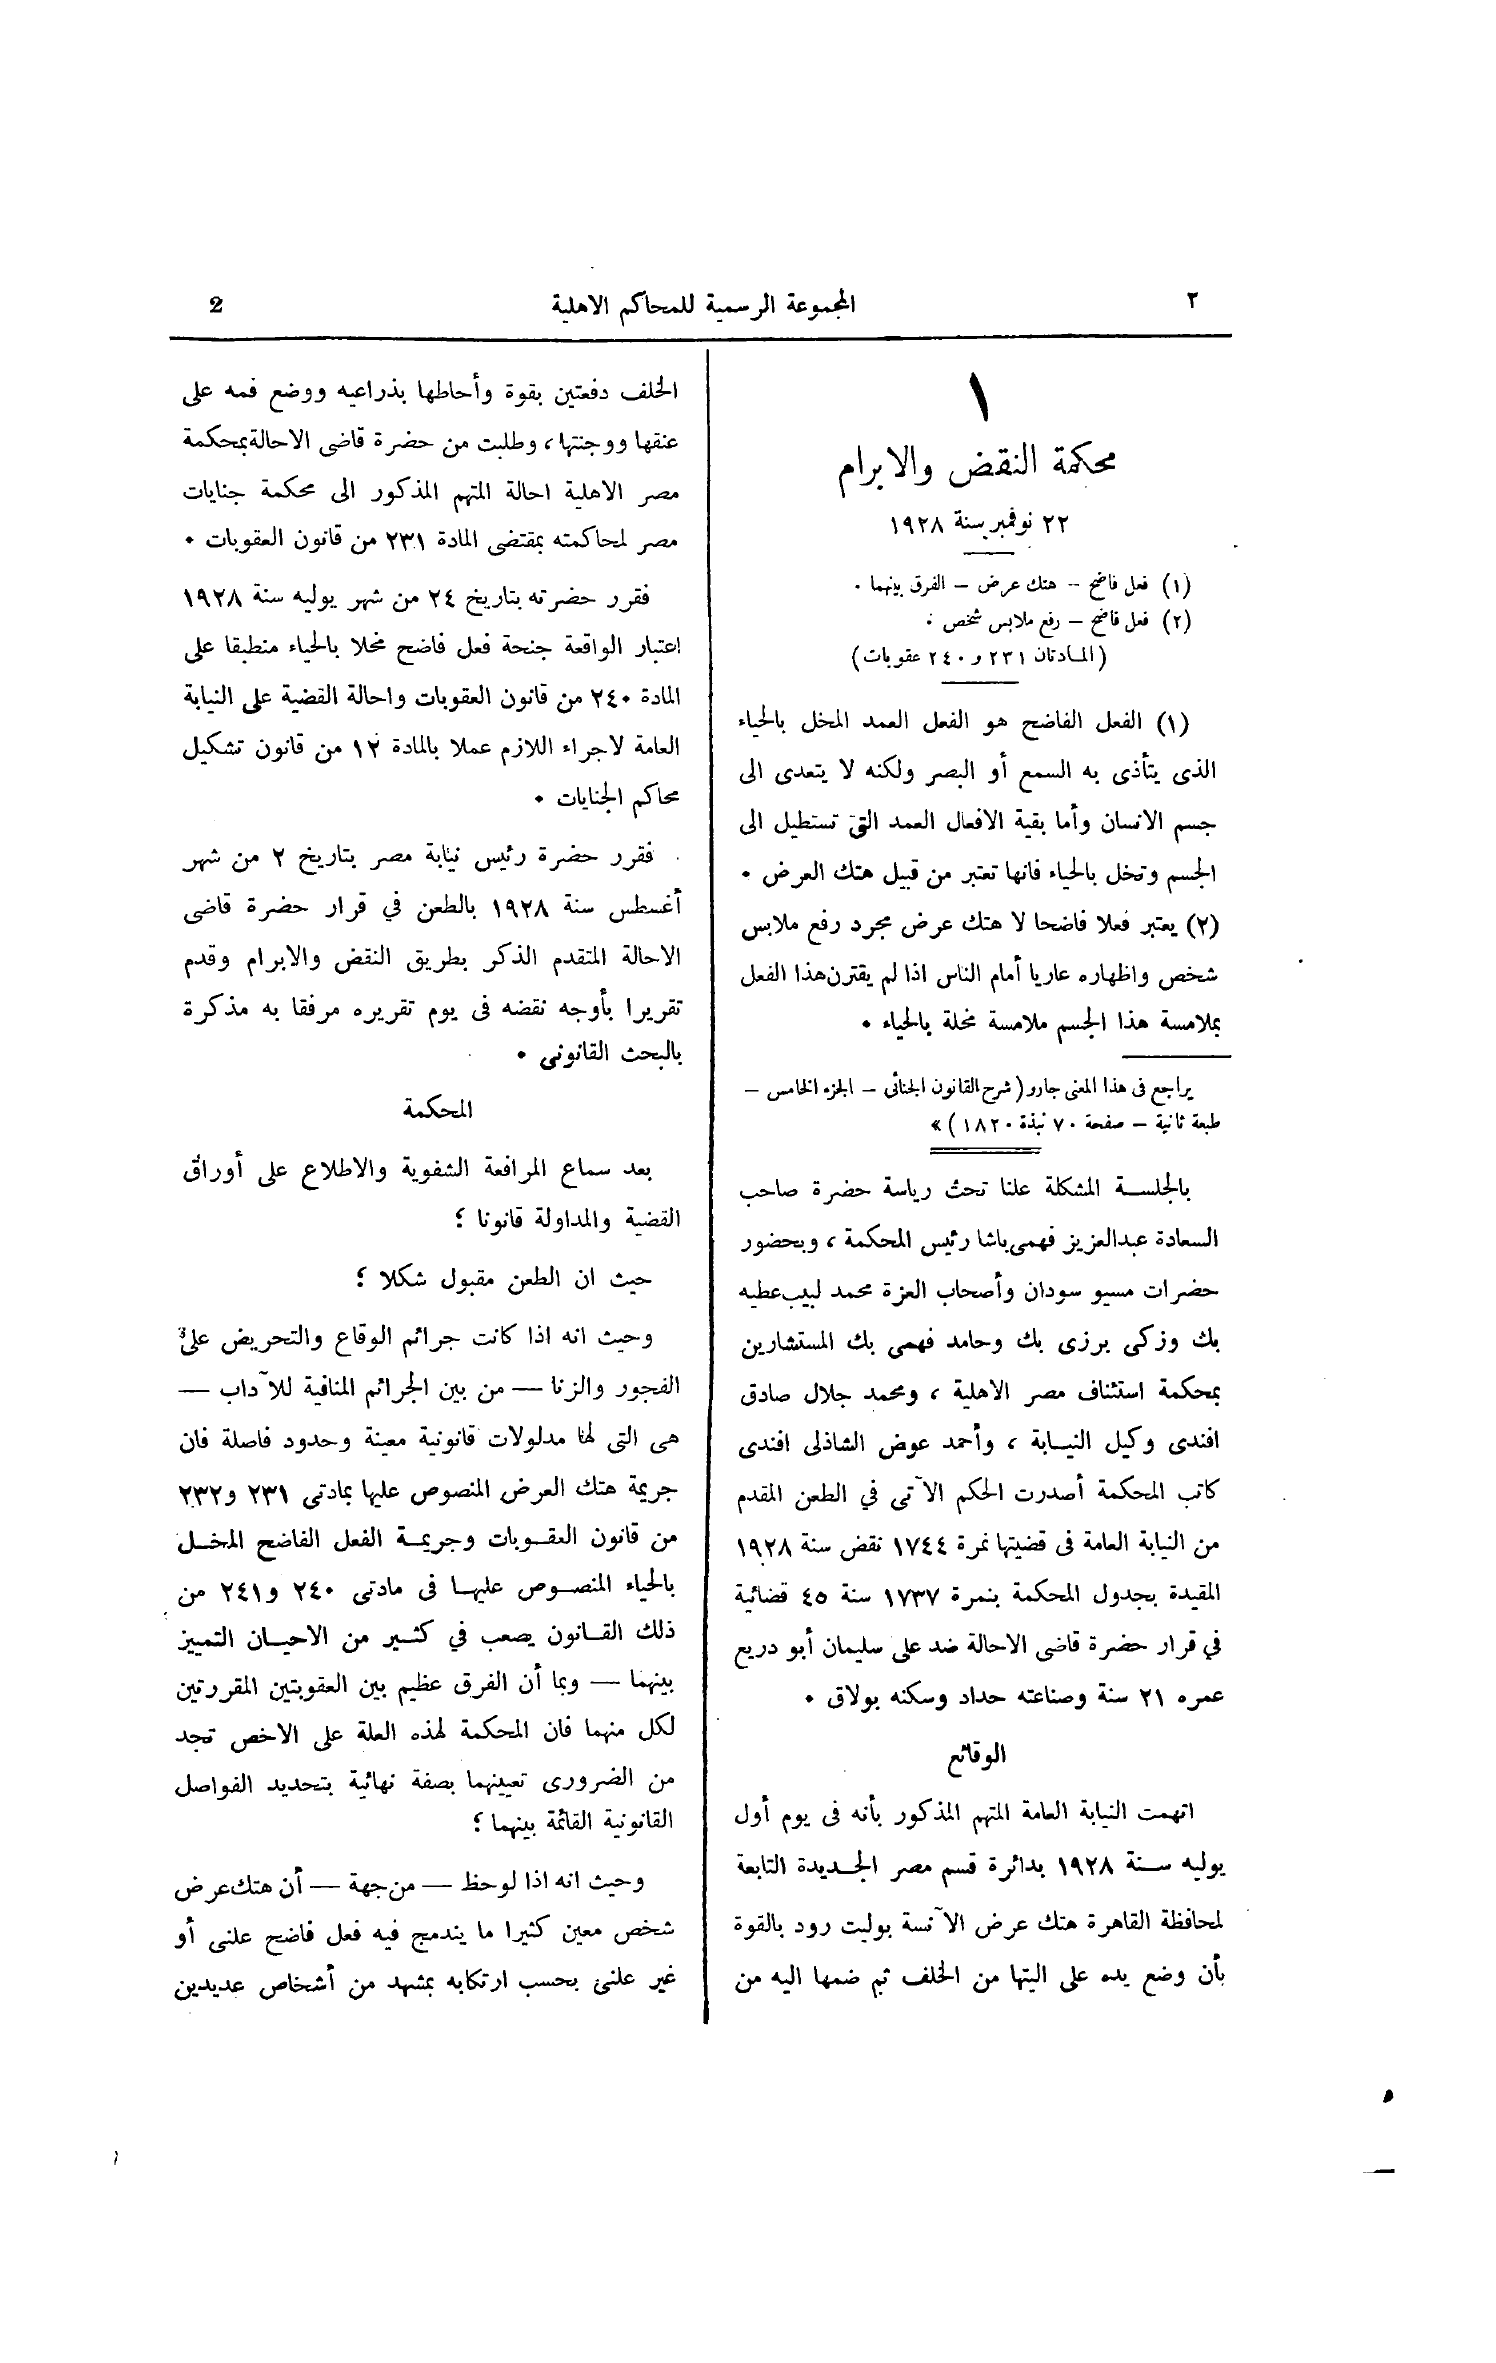 ٢
المجموعة الرسمية للمحاكم الاهلية
2
١
محكمة النقض والابرام
٢٢ نوفمبر سنة ١٩٢٨
(١) فعل فاضح – هتك عرض – الفرق بينهما .
(٢) فعل فاضح – رفع ملابس شخص .
(المادتان ٢٣١ و ٢٤٠ عقوبات)
(١) الفعل الفاضح هو الفعل العمد المخل بالحياء
الذى يتأذى به السمع أو البصر ولكنه لا يتعدى الى
جسم الانسان وأما بقية الافعال العمد التى تستطيل الى
الجسم وتخل بالحياء فانها تعتبر من قبيل هتك العرض .
(٢) يعتبر فعلا فاضحا لا هتك عرض مجرد رفع ملابس
شخص واظهاره عاريا أمام الناس اذا لم يقترن هذا الفعل
بملامسة هذا الجسم ملامسة مخلة بالحياء .
يراجع فى هذا المعنى جارو ( شرح القانون الجنائى – الجزء الخامس –
طبعة ثانية – صفحة ٧٠ نبذة ١٨٢٠ ) »
بالجلسة المشكلة علنا تحت رياسة حضرة صاحب
السعادة عبدالعزيز فهمى باشا رئيس المحكمة ، وبحضور
حضرات مسيو سودان وأصحاب العزة محمد لبيب عطيه
بك وزكى برزى بك وحامد فهمى بك المستشارين
بمحكمة استئناف مصر الاهلية ، ومحمد جلال صادق
افندى وكيل النيابة ، وأحمد عوض الشاذلى افندى
كاتب المحكمة أصدرت الحكم الآتى في الطعن المقدم
من النيابة العامة فى قضيتها نمرة ١٧٤٤ نقض سنة ١٩٢٨
المقيدة بجدول المحكمة بنمرة ١٧٣٧ سنة ٤٥ قضائية
في قرار حضرة قاضى الاحالة ضد على سليمان أبو دريع
عمره ٢١ سنة وصناعته حداد وسكنه بولاق .
الوقائع
اتهمت النيابة العامة المتهم المذكور بأنه فى يوم أول
يوليه سنة ١٩٢٨ بدائرة قسم مصر الجديدة التابعة
لمحافظة القاهرة هتك عرض الآنسة بوليت رود بالقوة
بأن وضع يده على اليتها من الخلف ثم ضمها اليه من
الخلف دفعتين بقوة وأحاطها بذراعيه ووضع فمه على
عنقها ووجنتها ، وطلبت من حضرة قاضى الاحالة بمحكمة
مصر الاهلية احالة المتهم المذكور الى محكمة جنايات
مصر لمحاكمته بمقتضى المادة ٢٣١ من قانون العقوبات .
فقرر حضرته بتاريخ ٢٤ من شهر يوليه سنة ١٩٢٨
اعتبار الواقعة جنحة فعل فاضح مخلا بالحياء منطبقا على
المادة ٢٤٠ من قانون العقوبات واحالة القضية على النيابة
العامة لاجراء اللازم عملا بالمادة ١٢ من قانون تشكيل
محاكم الجنايات .
فقرر حضرة رئيس نيابة مصر بتاريخ ٢ من شهر
أغسطس سنة ١٩٢٨ بالطعن في قرار حضرة قاضى
الاحالة المتقدم الذكر بطريق النقض والابرام وقدم
تقريرا بأوجه نقضه فى يوم تقريره مرفقا به مذكرة
بالبحث القانونى .
المحكمة
بعد سماع المرافعة الشفوية والاطلاع على أوراق
القضية والمداولة قانونا ؛
حيث ان الطعن مقبول شكلا ؛
وحيث انه اذا كانت جرائم الوقاع والتحريض على
الفجور والزنا — من بين الجرائم المنافية للآداب —
هى التى لها مدلولات قانونية معينة وحدود فاصلة فان
جريمة هتك العرض المنصوص عليها بمادتى ٢٣١ و٢٣٢
من قانون العقوبات وجريمة الفعل الفاضح المخل
بالحياء المنصوص عليها فى مادتى ٢٤٠ و٢٤١ من
ذلك القانون يصعب في كثير من الاحيان التمييز
بينهما — وبما أن الفرق عظيم بين العقوبتين المقررتين
لكل منهما فان المحكمة لهذه العلة على الاخص تجد
من الضرورى تعيينهما بصفة نهائية بتحديد الفواصل
القانونية القائمة بينهما ؛
وحيث انه اذا لوحظ — من جهة — أن هتك عرض
شخص معين كثيرا ما يندمج فيه فعل فاضح علنى أو
غير علنى بحسب ارتكابه بمشهد من أشخاص عديدين